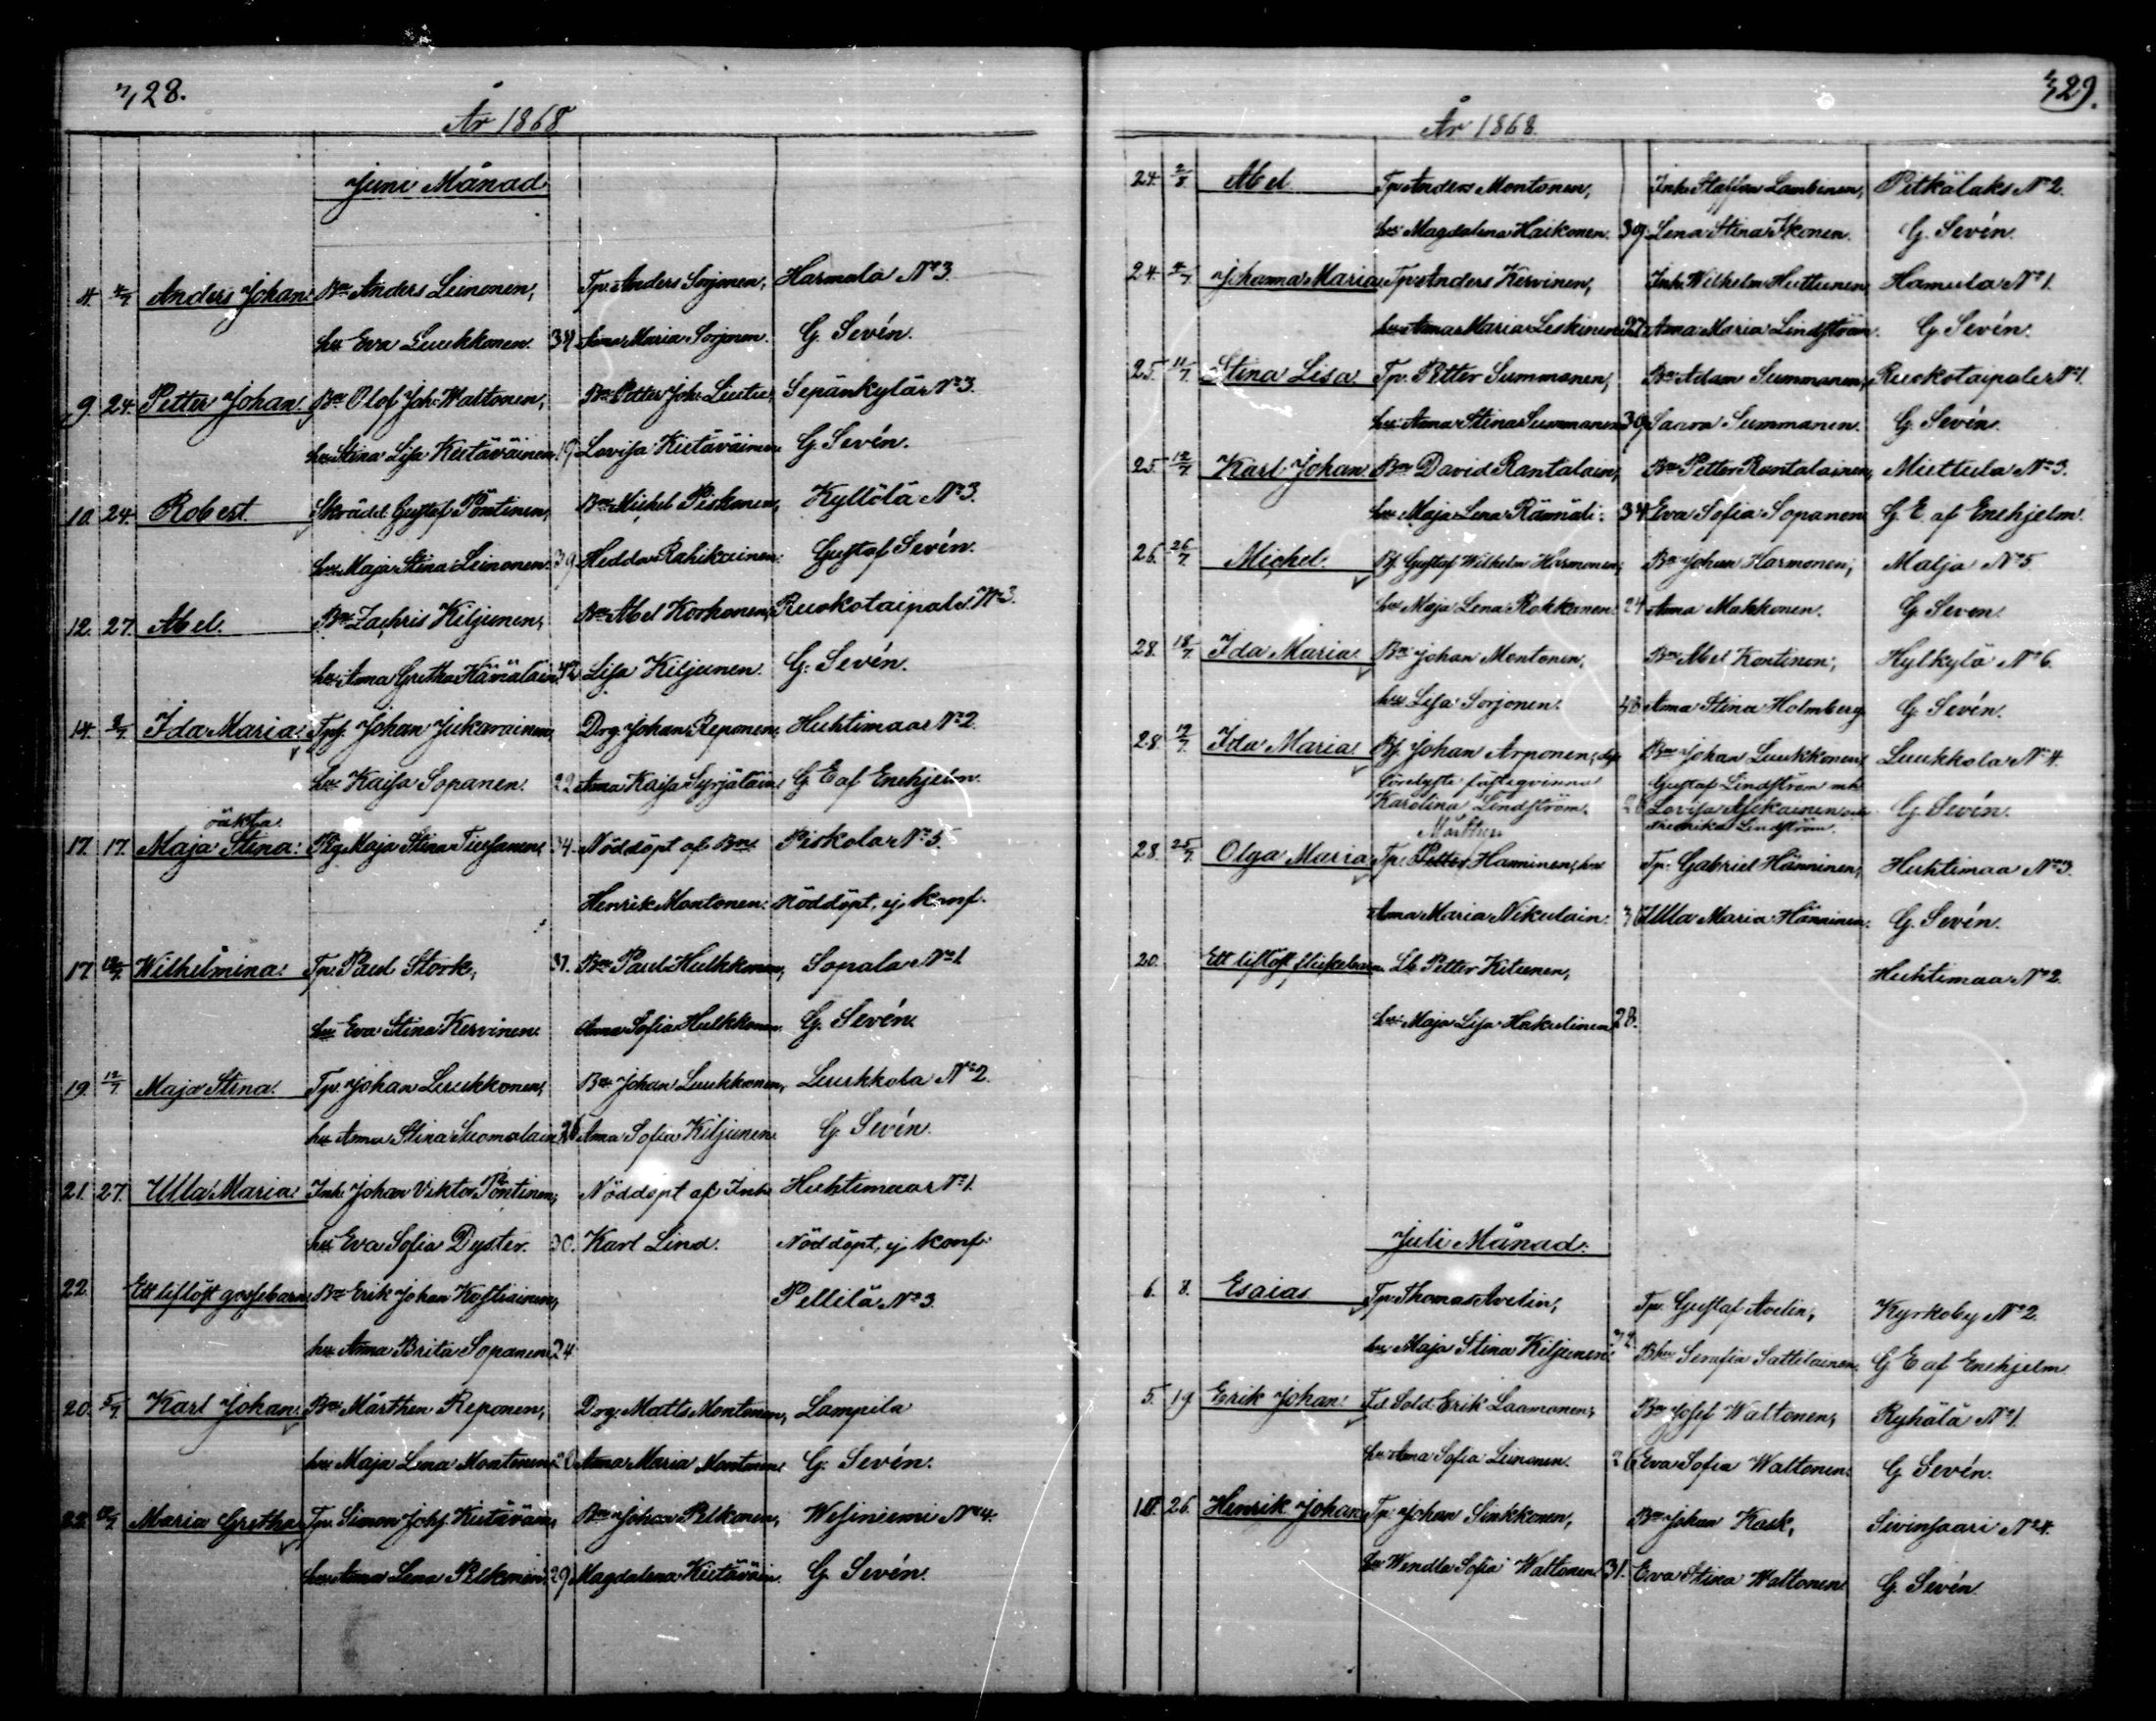 28.
År 1868
Juni Månad
4. 4/7 Anders Johan. Bn Anders Leinonen, Tp. Anders Sorjonen, Harmala No 3.
hu Eva Luukkonen. 34 Anna Maria Sorjonen. G. Sevén.
9. 24. Petter Johan. Bn Olof Joh. Waltonen, Bn Petter Joh. Liutu, Sepänkylä No 3.
hu Stina Lisa Kietäväinen 19 Lovisa Kietäväinen G. Sevén.
10. 24. Robert. Skrädd. Gustaf Pöntinen, Bn Michel Piskonen, Kyllölä No 3.
hu Maja Stina Leinonen. 39 Hedda Rahikainen. Gustaf Sevén.
12. 27. Abel. Bn Zachris Kiljunen, Bn Abel Korhonen, Ruokotaipale No 3.
hu Anna Gretha Hämäläin. 42 Lisa Kiljunen. G. Sevén.
14. 2/7 Ida Maria. Tpf. Johan Jukarainen, Drg. Johan Reponen, Huhtimaa No 2.
hu Kaisa Sopanen. 22 Anna Kaisa Syrjäläin. G. E. af Enehjelm.
oäkta
17. 17. Maja Stina. Pig. Maja Stina Tiusanen 34. Nöddöpt af Bn Piskola No 5.
Henrik Montonen. Nöddöpt, ej konf.
17. 12/7 Wilhelmina. Tp. Paul Stork, 31. Bn Paul Hulkkonen, Sopala No 1.
hu Eva Stina Kervinen Anna Sofia Hulkkonen. G. Sevén.
19. 12/7 Maja Stina. Tp. Johan Luukkonen, Bn Johan Luukkonen, Luukkola No 2.
hu Anna Stina Suomalain. 26 Anna Sofia Kiljunen G. Sevén.
21. 27. Ulla Maria. Inh. Johan Viktor Pöntinen, Nöddöpt af Inh. Huhtimaa No 1.
hu Eva Sofia Dyster. 30. Karl Lind. Nöddöpt, ej konf.
22. Ett liflöst gossebarn Bn Erik Johan Kostiainen, Pellilä No 3.
hu Anna Brita Sopanen 24
20. 5/7 Karl Johan. Bn Mårthen Reponen, Drg. Matts Montonen, Lampila
hu Maja Lena Montonen 20 Anna Maria Montonen G. Sevén.
22. 12/7 Maria Gretha Tp. Simon Johs. Kietäväin, Bn Johan Pelkonen, Wesiniemi No 4.
hu Anna Lena Pelkonen. 29 Magdalena Kietäväin. G. Sevén.
29.
År 1868.
24. 2/8 Abel Tp. Anders Montonen, Inh. Staffan Lambinen, Pitkälaks No 2.
hu Magdalena Haikonen. 39. Lena Stina Ikonen. G. Sevén.
24. 4/7 Johanna Maria Tp. Anders Kervinen, Inh. Wilhelm Huttunen, Hamula No 1.
hu Anna Maria Leskinen 27 Anna Maria Lindström. G. Sevén.
25. 11/7 Stina Lisa. Tp. Petter Summanen, Bn Adam Summanen, Ruokotaipale No 1.
hu Anna Stina Summanen 39 Saara Summanen. G. Sevén.
25. 12/7 Karl Johan Bn David Rantalain, Bn Petter Rantalainen, Miettula No 3.
hu Maja Lena Rämäläi: 34 Eva Sofia Sopanen G. E. af Enehjelm.
26. 26/7 Michel. Bf. Gustaf Wilhelm Harmonen, Bn Johan Harmonen, Malja No 5
hu Maja Lena Rokkanen. 24 Anna Makkonen. G. Seven.
28. 18/7 Ida Maria. Bn Johan Montonen, Bn Abel Kontinen, Hylkylä No 6.
hu Lisa Sorjonen. Anna Stina Holmberg. G. Sevén.
28. 19/7 Ida Maria. Bf. Johan Arponen, Bn Johan Luukkonen, Luukkola No 4.
fästeqvinna Gustaf Lindström mh
Karolina Lindström. 20 Lovisa Askainen G. Sevén.
Fredrika Lindström.
Mårthen
28. 25/7 Olga Maria Tp. Petter Hänninen, hu Tp. Gabriel Hänninen, Huhtimaa No 3.
Anna Maria Nikulain. 36 Ulla Maria Hänninen. G. Sevén.
20. Ett liflöst flickebarn. Lb. Petter Kitunen, Huhtimaa No 2.
hu Maja Lisa Hakulinen 28.
Juli Månad.
6. 8. Esaias Tp. Thomas Avelin, Tp. Gustaf Avelin, Kyrkoby No 2.
hu Maja Stina Kiljunen. 32 Bhu Serafia Sattilainen. G. E. af Enehjelm.
5. 19 Erik Johan. Fd Sold. Erik Laamanen, Bn Josef Waltonen, Ryhälä No 1.
hu Anna Sofia Leinonen. 26 Eva Sofia Waltonen. G. Sevén.
26. Henrik Johan Tp. Johan Sinkkonen, Bn Johan Kask, Sivinsaari No 4.
hu Wendla Sofia Waltonen 31. Eva Stina Waltonen G. Sevén.